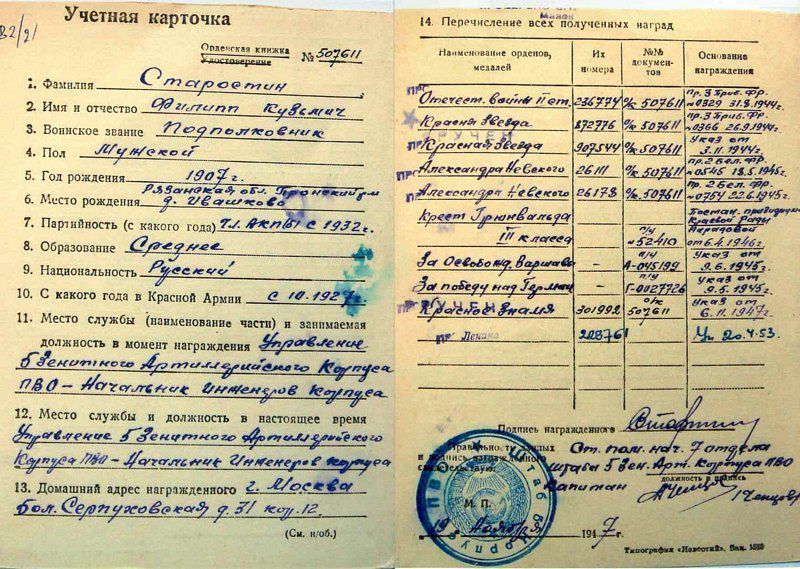 82/21
Учетная карточка
Орденская книжка
Удостоверение № 507611
1. Фамилия Старостин
2. Имя и отчество Филипп Кузьмич
3. Воинское звание Подполковник
4. Пол Мужской
5. Год рождения 1907 г.
Рязанская обл. Пронский р-н
6. Место рождения д. Ивашково
7. Партийность (с какого года) Чл. ВКП(б) с 1932 г.
8. Образование Среднее
9. Национальность Русский
10. С какого года в Красной Армии с 10.1927 г.
11. Место службы (наименование части) и занимаемая
должность в момент награждения Управление
5 Зенитного Артиллерийского Корпуса
ПВО – Начальник Инженеров Корпуса
12. Место службы и должность в настоящее время
Управление 5 Зенитного Артиллерийского
Корпуса ПВО – Начальник Инженеров Корпуса
13. Домашний адрес награжденного г. Москва
Бол. Серпуховская д. 31 кор. 12.
(См. н/об.)
14. Перечисление всех полученных наград
Наименование орденов, медалей Их номера №№ документов Основание награждения
Отечест. войны II ст. 236774 о/к 507611 пр. 3 Приб. Фр. №0329 31.8.1944г.
Красная Звезда 872776 о/к 507611 пр. 3 Приб. Фр. №0366 26.9.1944г.
Красная Звезда 907544 о/к 507611 Указ от 3.11.1944г.
Александра Невского 26111 о/к 507611 пр. 2 Бел. Фр. №0545 18.5.1945г.
Александра Невского 26178 о/к 507611 пр. 2 Бел. Фр. №0754 22.6.1945г.
Крест Грюнвальда III класса п/у №52410 Постан. президиум Краевой Рады Народовой от 6.4.1946г.
За Освобожд. Варшавы – А-045199 Указ от 9.6.1945г.
За победу над Герман – п/у Г-0027726 Указ от 9.5.1945г.
Красное Знамя 301992 о/к 507611 Указ от 6.11.1947г.
Ленина 228761 Ук. 20.4.53.
Подпись награжденного
Правильность данных
и подпись награжденного
свидетельствую:
Ст. пом. нач. 7 отдела
штаба 5 Зен. Арт. Корпуса ПВО
Капитан Ченцов
должность и подпись
М. П.
ноября 1947 г.
Типография «Известий». Зак.